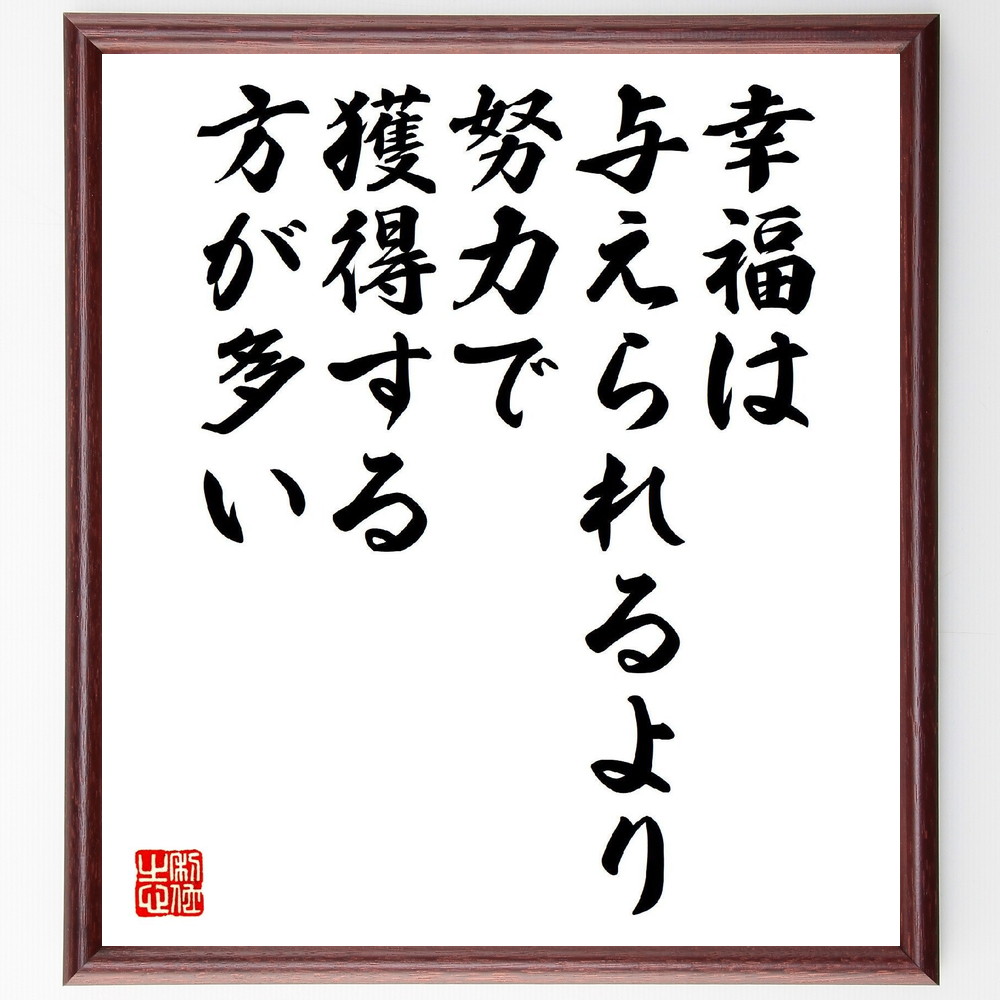 幸福は
与えられるより
努力で
獲得する
方が多い